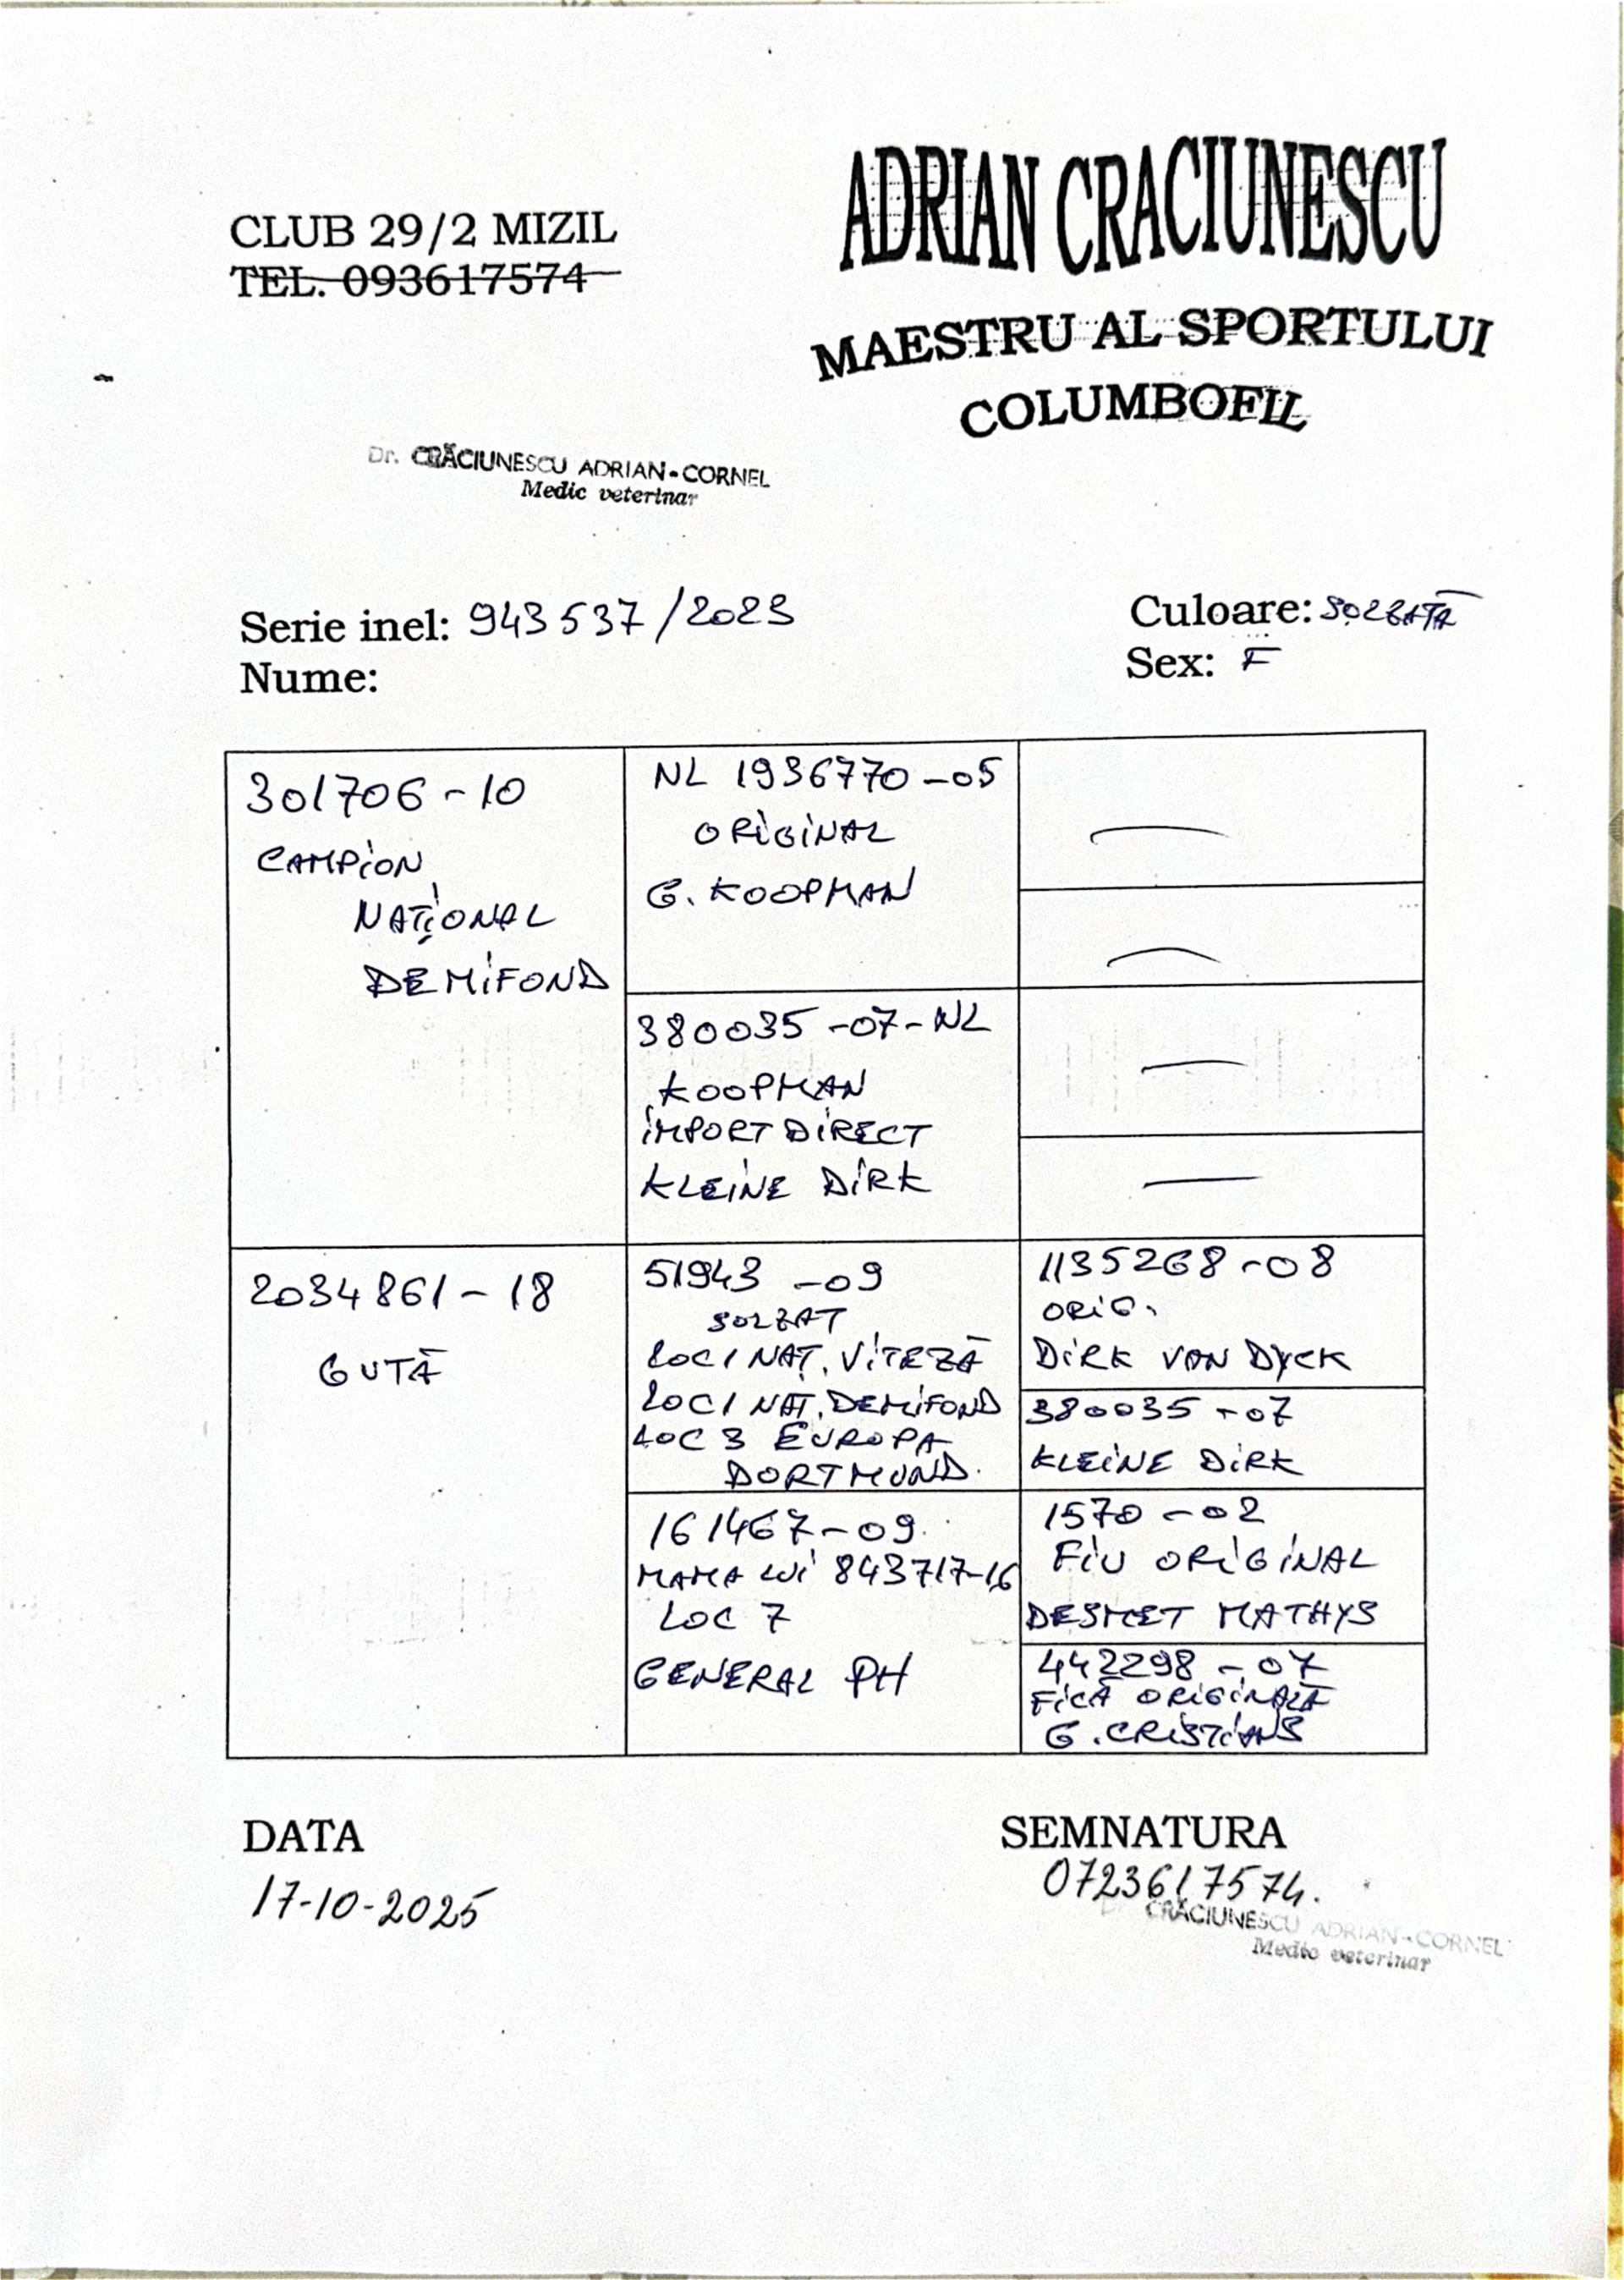 CLUB 29/2 MIZIL
TEL. 093617574
ADRIAN CRACIUNESCU
MAESTRU AL SPORTULUI
COLUMBOFIL
Dr. CRĂCIUNESCU ADRIAN-CORNEL
Medic veterinar
Serie inel: 943537/2023
Nume:
Culoare: SOLZATĂ
Sex: F
301706-10
CAMPION
NAȚIONAL
DEMIFOND
NL 1936770-05
ORIGINAL
G. KOOPMAN
380035-07-NL
KOOPMAN
IMPORT DIRECT
KLEINE DIRK
2034861-18
GUTĂ
51943-09
SOLZAT
LOC 1 NAȚ. VITEZĂ
LOC 1 NAȚ. DEMIFOND
LOC 3 EUROPA
DORTMUND.
161467-09
MAMA LUI 843717-16
LOC 7
GENERAL PH
1135268-08
ORIG.
DIRK VAN DYCK
380035-07
KLEINE DIRK
1570-02
FIU ORIGINAL
DESMET MATHYS
442298-07
FICĂ ORIGINALĂ
G. CRISTIANS
DATA
17-10-2025
SEMNATURA
0723617574.
Dr. CRĂCIUNESCU ADRIAN-CORNEL
Medic veterinar